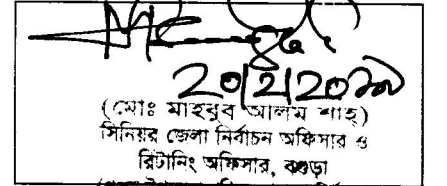 20/2/2019
(মোঃ মাহবুব আলম শাহ্)
সিনিয়র জেলা নির্বাচন অফিসার ও
রিটার্নিং অফিসার, বগুড়া